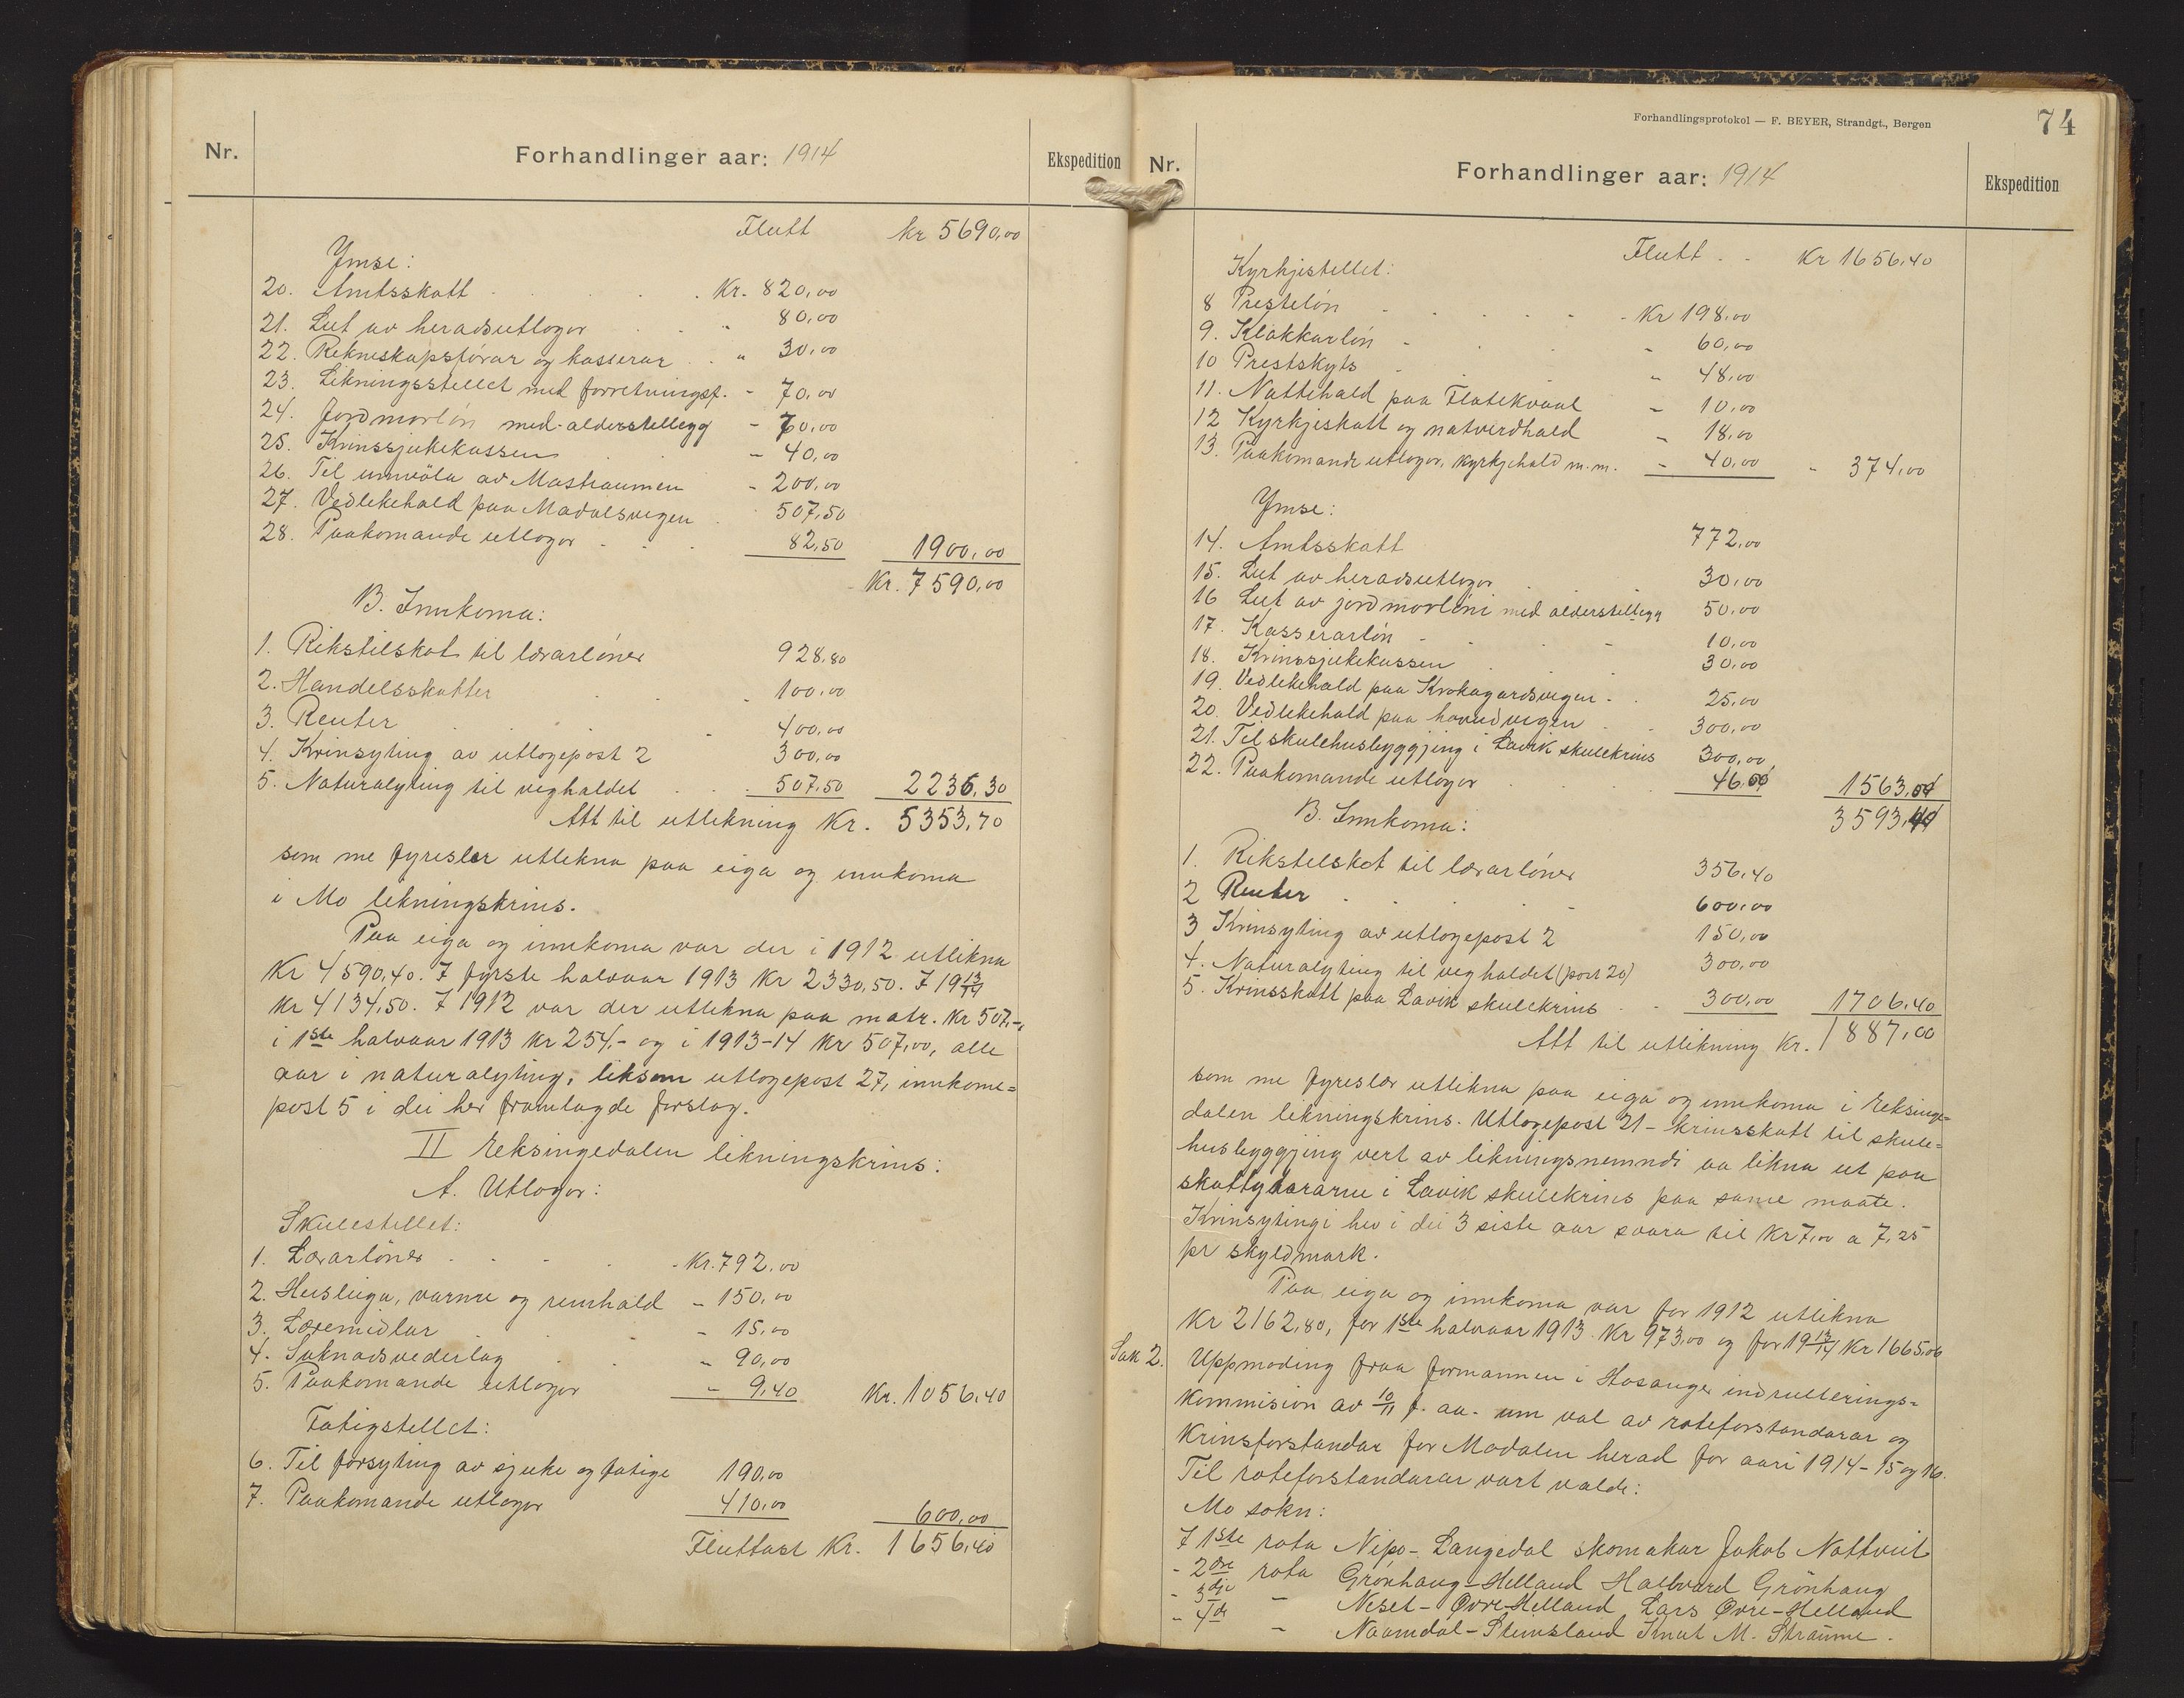 Nr.
Forhandlinger aar: 1914
Ekspedition
Flutt kr 5690,00
Ymse:
20. Amtsskatt Kr. 820,00
21. Lut av heradsutlogor " 80,00
22. Rekneskapsförar og kasserar " 30,00
23. Likningsstellet med forretningsf. - 70,00
24. Jordmorlön med alderstellegg - 70,00
25. Krinssjukekassen - 40,00
26. Til umvöla av Mostraumen - 200,00
27. Vedlikehald paa Modalsvegen 507,50
28. Paakomande utlogor 82,50 1900,00
Kr. 7590,00
B. Innkoma:
1. Rikstilskot til lærarlöner 928,80
2. Handelsskatter 100,00
3. Renter 400,00
4. Krinsyting av utlogepost 2 300,00
5. Naturalyting til veghaldet 507,50 2236,30
Att til utlikning Kr. 5353,70
som me fyreslær utlikna paa eiga og innkoma
i Mo likningskrins.
Paa eiga og innkoma var der i 1912 utlikna
Kr 4590,40. I fyrste halvaar 1913 Kr 2330,50. I 19 13/14
Kr 4134,50. I 1912 var der utlikna paa matr. Kr 507,-
i 1ste halvaar 1913 kr 254,- og i 1913-14 Kr 507,00, alle
aar i naturalyting, liksom utlogepost 27, innkome=
post 5 i dei her framlagde forslag.
II Eksingedalen likningskrins:
A. Utlogor:
Skulestellet:
1. Lærarlöner Kr. 792,00
2. Husleiga, varme og reinhald - 150,00
3. Læremidlar - 15,00
4. Saknadsvederlag - 90,00
5. Paakomande utlogor - 9,40 Kr. 1056,40
Fatigstellet:
6. Til forsyting av sjuke og fatige 190,00
7. Paakomande utlogor 410,00 600,00
Fluttast Kr. 1656,40
Forhandlingsprotokol — F. BEYER, Strandgt., Bergen
74
Nr.
Forhandlinger aar: 1914
Ekspedition
Flutt Kr 1656,40
Kyrkjestellet:
8 Prestelön Kr 198,00
9. Klokkarlön - 60,00
10 Prestskyts - 48,00
11. Nattehald paa Flatekvaal - 10,00
12 Kyrkjeskatt og natverdhald - 18,00
13. Paakomande utlogor, kyrkjehald m.m. - 40,00 - 374,00
Ymse:
14. Amtsskatt 772,00
15. Lut av heradsutlogor 30,00
16 Lut av jordmorlöni med alderstillegg 50,00
17. Kasserarlön 10,00
18. Krinssjukekassen 30,00
19. Vedlikehald paa Krokagardsvegen 25,00
20. Vedlikehald paa hovudvegen 300,00
21. Til skulehusbyggjing i Lavik skulekrins 300,00
22. Paakomande utlogor 46,00 1563,00
3593,40
B. Innkoma:
1. Rikstilskot til lærarlöner 356,40
2 Renter 600,00
3 Krinsyting av utlogepost 2 150,00
4. Naturalyting til veghaldet (post 20) 300,00
5. Krinsskatt paa Lavik skulekrins 300,00 1706,40
Att til utlikning Kr. 1887,00
som me fyreslær utlikna paa eiga og innkoma i Eksinge=
dalen likningskrins. Utlogepost 21 - krinsskatt til skule=
husbyggjing vert av likningsnemndi aa likna ut paa
skattydararne i Lavik skulekrins paa same maate.
Krinsytingi hev i dei 3 siste aar svara til Kr 7,00 a 7,25
pr skyldmark.
Paa eiga og innkoma var for 1912 utlikna
Kr 2162,80, for 1ste halvaar 1913 Kr 973,00 og for 19 13/14 Kr 1665,06
Sak 2. Uppmoding fraa formannen i Hosanger inrullerings=
kommision av 10/11 f. aa. um val av roteforstandarar og
krinsforstandar for Modalen herad for aari 1914-15 og 16.
Til roteforstandarar vart valde:
Mo sokn:
I 1ste rota Nipo-Langedal skomakar Jakob Nottveit
- 2dre rota Grönhaug-Helland Hallvard Grönhaug
- 3dje - Neset-Øvre-Helland Lars Øvre-Helland
- 4de - Naamdal-Steinsland Knut M. Straume.